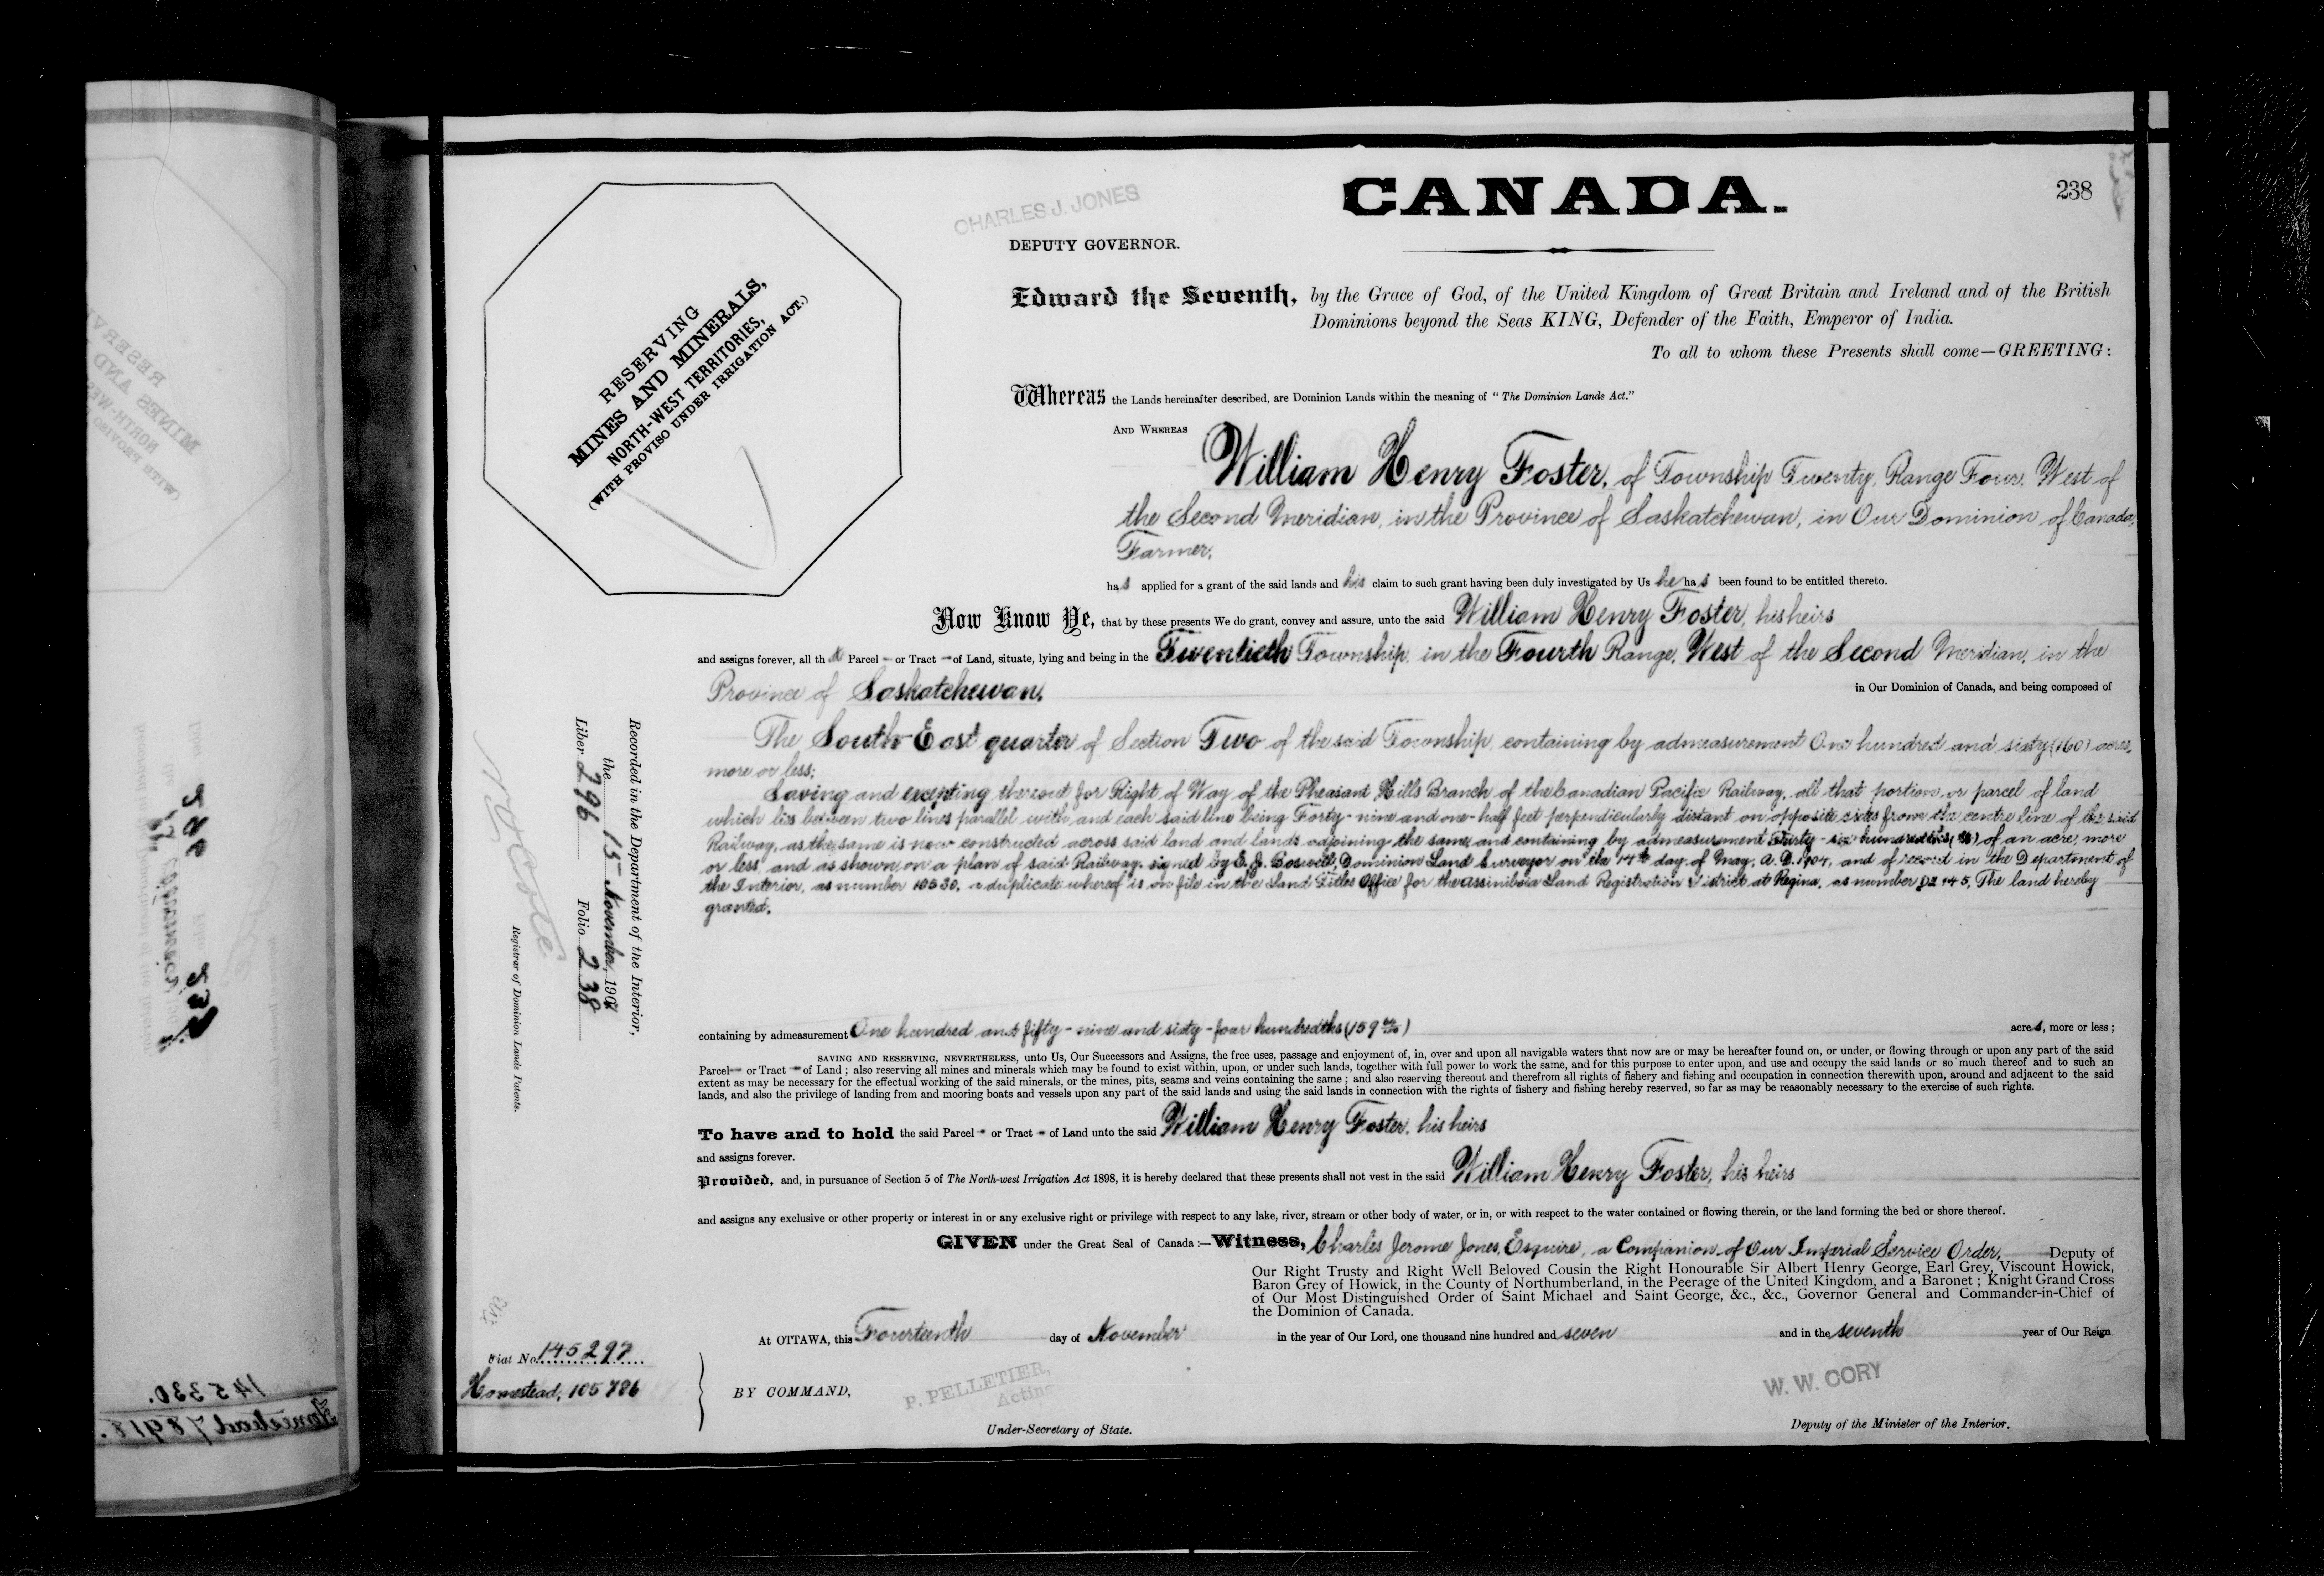 238
CANADA.
CHARLES J. JONES
DEPUTY GOVERNOR.
RESERVING
MINES AND MINERALS,
NORTH-WEST TERRITORIES,
(WITH PROVISO UNDER IRRIGATION ACT.)
Edward the Seventh, by the Grace of God, of the United Kingdom of Great Britain and Ireland and of the British
Dominions beyond the Seas KING, Defender of the Faith, Emperor of India.
To all to whom these Presents shall come—GREETING:
Whereas the Lands hereinafter described, are Dominion Lands within the meaning of "The Dominion Lands Act."
AND WHEREAS
William Henry Foster, of Township Twenty, Range Four, West of
the Second Meridian, in the Province of Saskatchewan, in Our Dominion of Canada,
Farmer,
has applied for a grant of the said lands and his claim to such grant having been duly investigated by Us he has been found to be entitled thereto.
Now Know Ye, that by these presents We do grant, convey and assure, unto the said William Henry Foster, his heirs
and assigns forever, all that Parcel or Tract of Land, situate, lying and being in the Twentieth Township, in the Fourth Range, West of the Second Meridian, in the
Province of Saskatchewan, in Our Dominion of Canada, and being composed of
The South-East quarter of Section Two of the said Township, containing by admeasurement One hundred and sixty (160) acres,
more or less;
Saving and excepting thereout for Right of Way of the Pheasant Hills Branch of the Canadian Pacific Railway, all that portion or parcel of land
which lies between two lines parallel with, and each said line being Forty-nine and one-half feet perpendicularly distant on opposite sides from the centre line of the said
Railway, as the same is now constructed across said land and lands adjoining the same, and containing by admeasurement Thirty-six hundredths of an acre, more
or less, and as shown on a plan of said Railway, signed by E. J. Boswell, Dominion Land Surveyor on the 14th day of May, A.D. 1904, and of record in the Department of
the Interior, as number 10530, a duplicate whereof is on file in the Land Titles Office for the Assiniboia Land Registration District at Regina, as number 145, The land hereby
granted,
containing by admeasurement One hundred and fifty-nine and sixty-four hundredths (159 64/100) acres, more or less;
SAVING AND RESERVING, NEVERTHELESS, unto Us, Our Successors and Assigns, the free uses, passage and enjoyment of, in, over and upon all navigable waters that now are or may be hereafter found on, or under, or flowing through or upon any part of the said
Parcel or Tract of Land; also reserving all mines and minerals which may be found to exist within, upon, or under such lands, together with full power to work the same, and for this purpose to enter upon, and use and occupy the said lands or so much thereof and to such an
extent as may be necessary for the effectual working of the said minerals, or the mines, pits, seams and veins containing the same; and also reserving thereout and therefrom all rights of fishery and fishing and occupation in connection therewith upon, around and adjacent to the said
lands, and also the privilege of landing from and mooring boats and vessels upon any part of the said lands and using the said lands in connection with the rights of fishery and fishing hereby reserved, so far as may be reasonably necessary to the exercise of such rights.
To have and to hold the said Parcel or Tract of Land unto the said William Henry Foster, his heirs
and assigns forever.
Provided, and, in pursuance of Section 5 of The North-west Irrigation Act 1898, it is hereby declared that these presents shall not vest in the said William Henry Foster, his heirs
and assigns any exclusive or other property or interest in or any exclusive right or privilege with respect to any lake, river, stream or other body of water, or in, or with respect to the water contained or flowing therein, or the land forming the bed or shore thereof.
GIVEN under the Great Seal of Canada:—Witness, Charles Jerome Jones, Esquire, a Companion of Our Imperial Service Order, Deputy of
Our Right Trusty and Right Well Beloved Cousin the Right Honourable Sir Albert Henry George, Earl Grey, Viscount Howick,
Baron Grey of Howick, in the County of Northumberland, in the Peerage of the United Kingdom, and a Baronet; Knight Grand Cross
of Our Most Distinguished Order of Saint Michael and Saint George, &c., &c., Governor General and Commander-in-Chief of
the Dominion of Canada.
At OTTAWA, this Fourteenth day of November in the year of Our Lord, one thousand nine hundred and seven and in the seventh year of Our Reign.
BY COMMAND,
P. PELLETIER,
Acting
Under-Secretary of State.
W. W. CORY
Deputy of the Minister of the Interior.
Recorded in the Department of the Interior,
the 15 November, 1907
Liber 296 Folio 238
Registrar of Dominion Lands Patents.
Fiat No. 145297
Homestead, 105786
145330.
Homestead 78918.